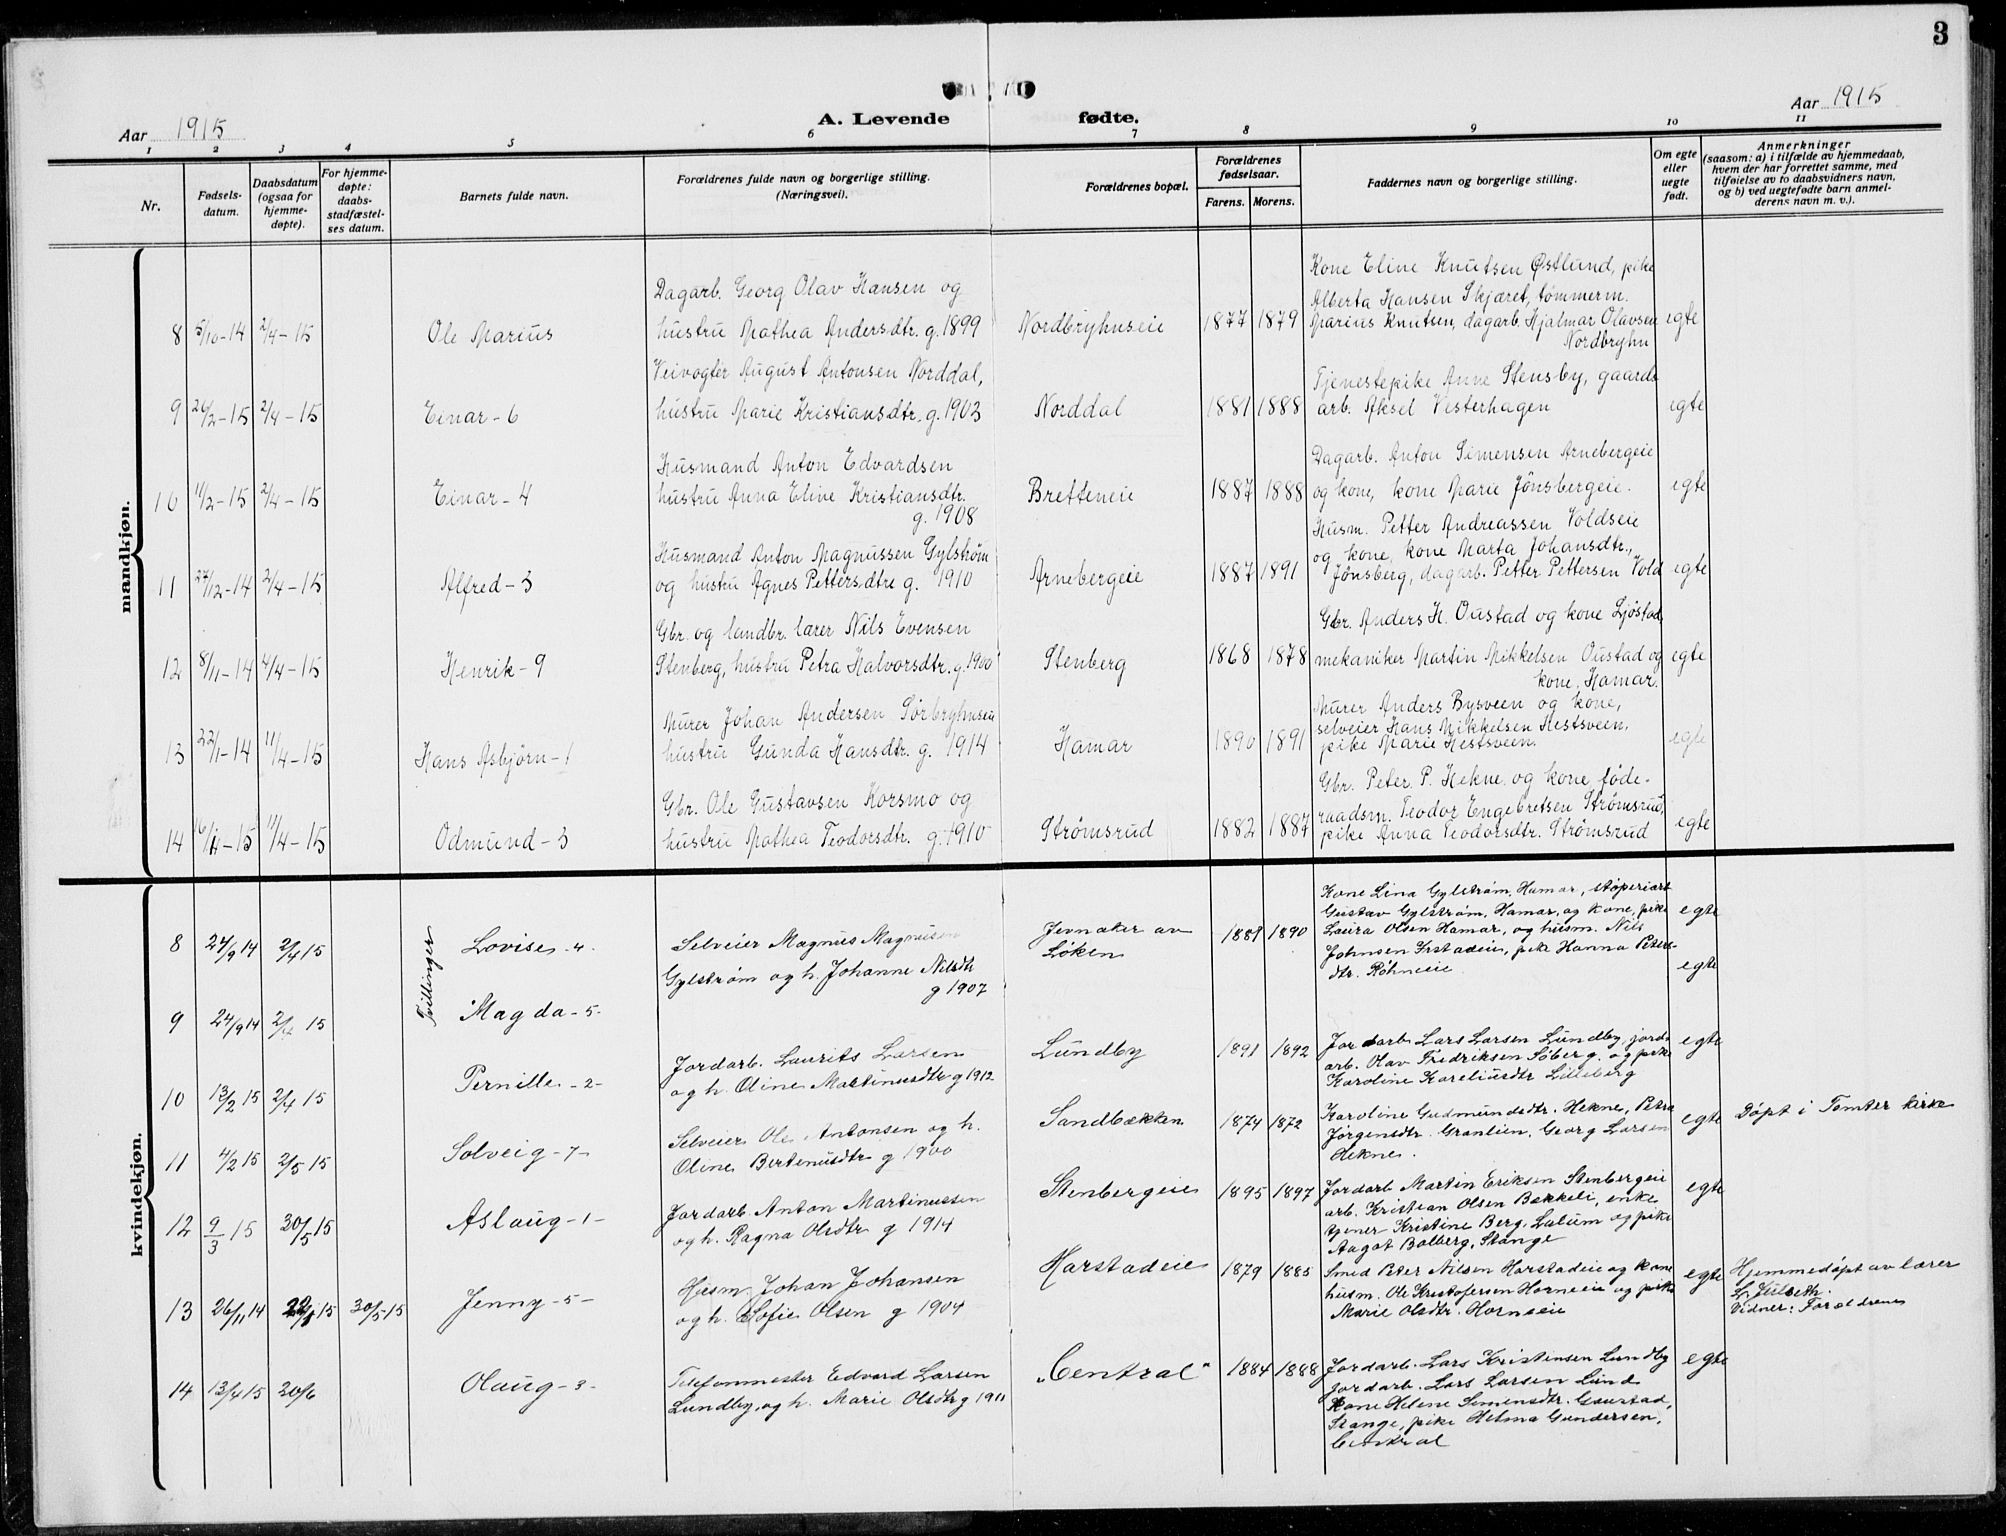 3
Aar 1915
A. Levende fødte.
Aar 1915
1 2 3 4 5 6 7 8 9 10 11
Nr.
Fødsels-
datum.
Daabsdatum
(ogsaa for
hjemme-
døpte).
For hjemme-
døpte:
daabs-
stadfæstel-
ses datum.
Barnets fulde navn.
Forældrenes fulde navn og borgerlige stilling.
(Næringsvei).
Forældrenes bopæl.
Forældrenes
fødselsaar.
Farens. Morens.
Faddernes navn og borgerlige stilling.
Om egte
eller
uegte
født.
Anmerkninger
(saasom: a) i tilfælde av hjemmedaab,
hvem der har forrettet samme, med
tilføielse av to daabsvidners navn,
og b) ved uegtefødte barn anmel-
derens navn m. v.).
mandkjøn.
8 5/10-14 2/4-15
Ole Marius
Dagarb. Georg Olav Hansen og
hustru Mathea Andersdtr. g. 1899
Nordbryhuseie
1877 1879
Kone Eline Knutsen Østlund, pike
Alberta Hansen Skjæret, tømmerm.
Marius Knutsen, dagarb. Hjalmar Olavsen
Nordbryhu
egte
9 24/2-15 2/4-15
Einar - 6
Veivogter August Antonsen Norddal,
hustru Marie Kristiansdtr. g. 1903
Norddal
1881 1888
Tjenestepike Anne Stensby, gaards
arb. Aksel Vesterhagen
egte
10 11/2-15 2/4-15
Einar - 4
Husmand Anton Edvardsen
hustru Anna Eline Kristiansdtr.
g. 1908
Bretteneie
1887 1888
Dagarb. Anton Simensen Arnebergeie
og kone, kone Marie Jønsbergeie.
egte
11 27/12-14 2/4-15
Alfred - 3
Husmand Anton Magnussen Gylstrøm
og hustru Agnes Pettersdtr g. 1910
Arnebergeie
1887 1891
Husm. Petter Andreassen Voldseie
og kone, kone Marta Johansdtr.,
Jønsberg, dagarb. Petter Pettersen Vold
egte
12 8/11-14 4/4-15
Henrik - 9
Gbr. og landbr. lærer Nils Evensen
Stenberg, hustru Petra Halvorsdtr. g. 1900
Stenberg
1868 1878
Gbr. Anders H. Oustad og kone Ljøstad,
mekaniker Martin Mikkelsen Oustad og
kone, Hamar.
egte
13 22/1-14 11/4-15
Hans Asbjørn - 1
Murer Johan Andersen Sørbryhuseie
hustru Gunda Hansdtr. g. 1914
Hamar
1890 1891
Murer Anders Bysveen og kone,
selveier Hans Mikkelsen Hestsveen,
pike Marie Hestsveen.
egte
14 16/1-15 11/4-15
Odmund - 3
Gbr. Ole Gustavsen Korsmo og
hustru Mathea Teodorsdtr. g. 1910
Strømsrud
1882 1887
Gbr. Peter P. Hekne og kone, føde-
raadsm. Teodor Engebretsen Strømsrud,
pike Anna Teodorsdtr. Strømsrud
egte
kvindekjøn.
Tvillinger
8 24/9 14 2/4 15
Lovise - 4 -
Selveier Magnus Magnussen
Gylstrøm og h. Johanne Nilsdtr
g 1907
Jevnaker av
Løken
1889 1890
Kone Lina Gylstrøm, Hamar, støperiarb
Gustav Gylstrøm, Hamar, og kone, pike
Laura Olsen Hamar, og husm. Nils
Johnsen Irstadeie, pike Hanna Peters-
dtr. Røhneeie
egte
egte
9 24/9 14 2/4 15
Magda - 5 -
10 13/2 15 2/4 15
Pernille - 2 -
Jordarb. Laurits Larsen
og h. Oline Martinusdtr g 1912
Lundby
1891 1892
Jordarb Lars Larsen Lundby, jords
arb. Olav Fredriksen Søberg. og pike
Karoline Kareliusdtr Lilleberg
egte
11 4/2 15 2/5 15
Solveig - 7 -
Selveier Ole Antonsen og h.
Oline Bertinusdtr g 1900
Sandbækken
1874 1872
Karoline Gudmundsdtr. Hekne, Petra
Jørgensdtr. Granlien, Georg Larsen
Hekne.
egte
Døpt i Tomter kirke
12 9/3 15 30/5 15
Aslaug - 1 -
Jordarb Anton Martinussen
og h. Ragna Olsdtr g 1914
Stenbergeie
1895 1897
Jordarb Martin Eriksen Stenbergeie
arb. Kristian Olsen Bekkeli, enke
tjener Kristine Berg, Lalum og pike
Aagot Bolberg, Stange
egte
13 26/11 14 22/1 15 30/5-15
Jenny - 5 -
Husm. Johan Johansen
og h. Sofie Olsen g 1904
Harstadeie
1879 1885
Smed Peter Nilsen Harstadeie og kone
husm. Ole Kristofersen Horneeie og pike
Marie Olsdtr. Horneeie
egte
Hjemmedøpt av lærer
L. Julseth.
Vidner: Forældrene
14 13/4 15 20/6
Olaug - 3 -
Telefonmester Edvard Larsen
Lundby, og h. Marie Olsdtr g 1911
„Central"
1884 1888
Jordarb. Lars Kristinsen Lundby
jordarb. Lars Larsen Lund
Kone Helene Simensdtr. Gaustad,
Stange, pike Helma Gundersen,
Central
egte